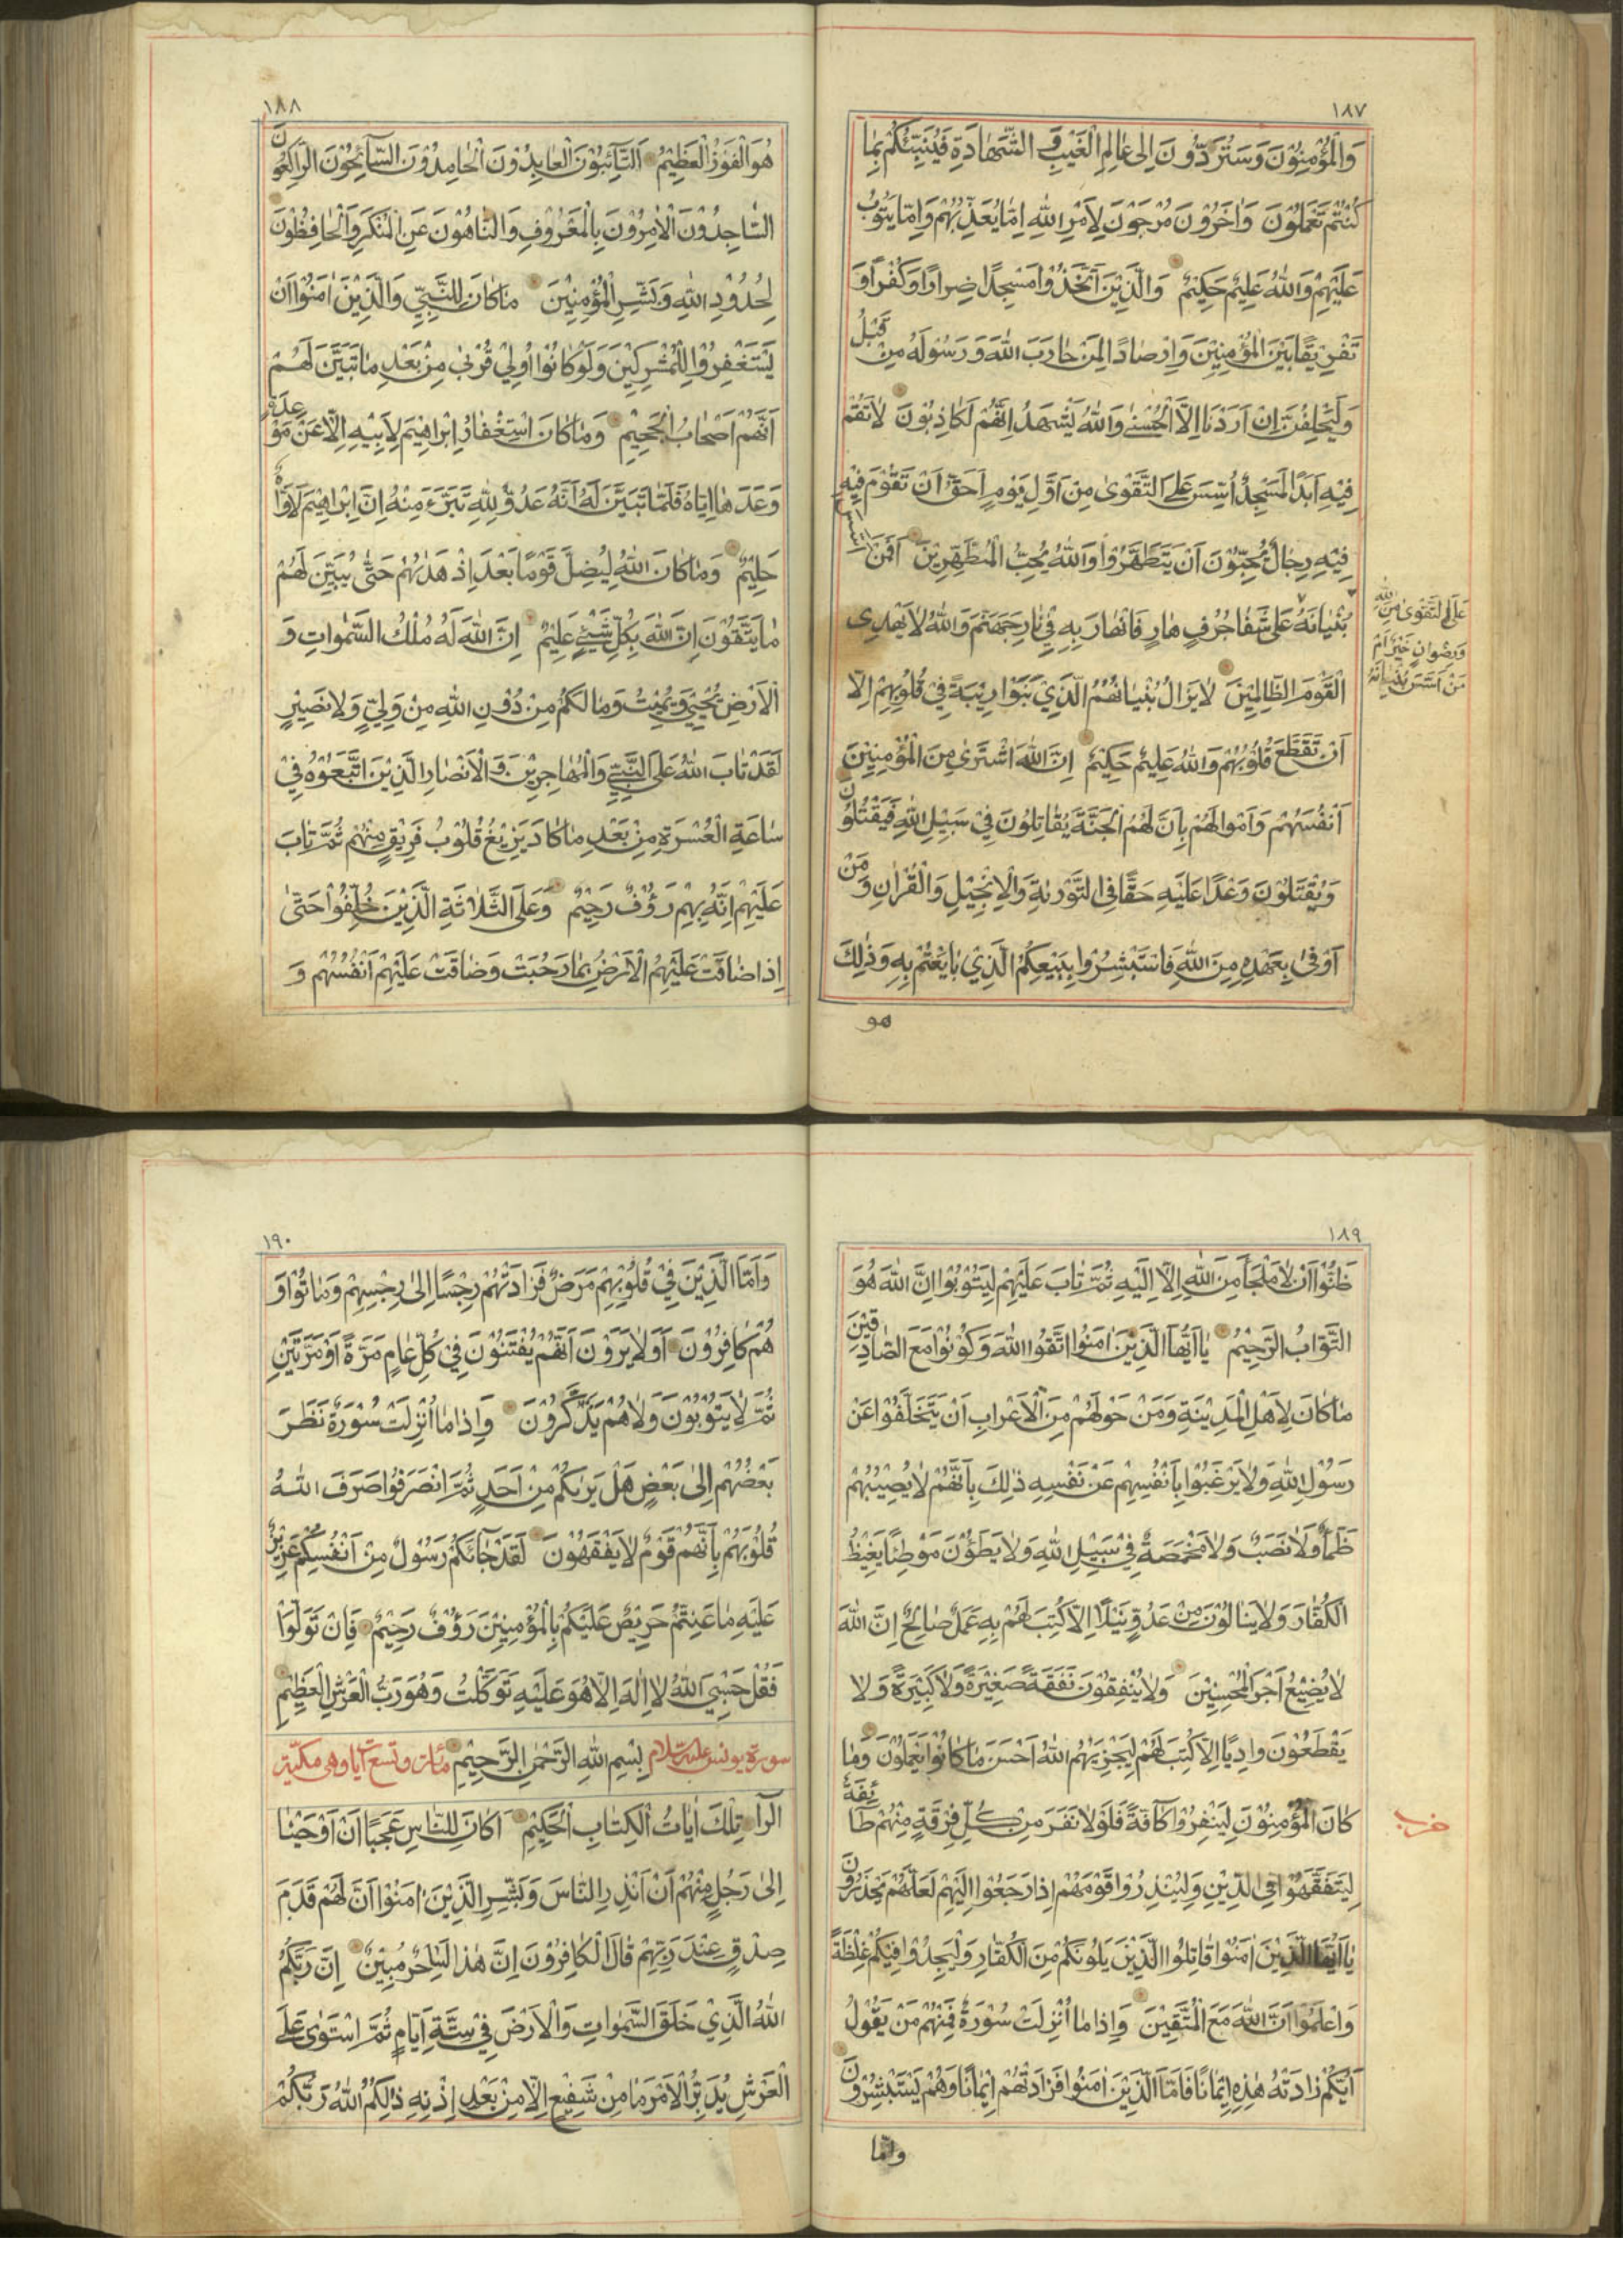 ١٨٧
وَالْمُؤْمِنُوْنَ وَسَتُرَدُّوْنَ اِلٰى عَالِمِ الْغَيْبِ وَ الشَّهَادَةِ فَيُنَبِّئُكُمْ بِمَا
كُنْتُمْ تَعْمَلُوْنَ وَاٰخَرُوْنَ مُرْجَوْنَ لِاَمْرِ اللّٰهِ اِمَّا يُعَذِّبُهُمْ وَاِمَّا يَتُوْبُ
عَلَيْهِمْ وَاللّٰهُ عَلِيْمٌ حَكِيْمٌ وَالَّذِيْنَ اتَّخَذُوْا مَسْجِدًا ضِرَارًا وَكُفْرًا وَ
تَفْرِيْقًا بَيْنَ الْمُؤْمِنِيْنَ وَاِرْصَادًا لِمَنْ حَارَبَ اللّٰهَ وَرَسُوْلَهُ مِنْ قَبْلُ
وَلَيَحْلِفُنَّ اِنْ اَرَدْنَا اِلَّا الْحُسْنٰى وَاللّٰهُ يَشْهَدُ اِنَّهُمْ لَكَاذِبُوْنَ لَا تَقُمْ
فِيْهِ اَبَدًا لَمَسْجِدٌ اُسِّسَ عَلَى التَّقْوٰى مِنْ اَوَّلِ يَوْمٍ اَحَقُّ اَنْ تَقُوْمَ فِيْهِ
فِيْهِ رِجَالٌ يُحِبُّوْنَ اَنْ يَتَطَهَّرُوْا وَاللّٰهُ يُحِبُّ الْمُطَّهِّرِيْنَ اَفَمَنْ اَسَّسَ
بُنْيَانَهُ عَلٰى شَفَا جُرُفٍ هَارٍ فَانْهَارَ بِهِ فِيْ نَارِ جَهَنَّمَ وَاللّٰهُ لَا يَهْدِى
عَلَى التَّقْوٰى مِنَ اللّٰهِ
وَرِضْوَانٍ خَيْرٌ اَمْ
مَنْ اَسَّسَ بُنْيَانَهُ
الْقَوْمَ الظَّالِمِيْنَ لَا يَزَالُ بُنْيَانُهُمُ الَّذِيْ بَنَوْا رِيْبَةً فِيْ قُلُوْبِهِمْ اِلَّا
اَنْ تَقَطَّعَ قُلُوْبُهُمْ وَاللّٰهُ عَلِيْمٌ حَكِيْمٌ اِنَّ اللّٰهَ اشْتَرٰى مِنَ الْمُؤْمِنِيْنَ
اَنْفُسَهُمْ وَاَمْوَالَهُمْ بِاَنَّ لَهُمُ الْجَنَّةَ يُقَاتِلُوْنَ فِيْ سَبِيْلِ اللّٰهِ فَيَقْتُلُوْنَ
وَيُقْتَلُوْنَ وَعْدًا عَلَيْهِ حَقًّا فِى التَّوْرٰيةِ وَالْاِنْجِيْلِ وَالْقُرْاٰنِ وَمَنْ
اَوْفٰى بِعَهْدِهِ مِنَ اللّٰهِ فَاسْتَبْشِرُوْا بِبَيْعِكُمُ الَّذِيْ بَايَعْتُمْ بِهِ وَذٰلِكَ
هو
١٨٨
هُوَ الْفَوْزُ الْعَظِيْمُ اَلتَّائِبُوْنَ الْعَابِدُوْنَ الْحَامِدُوْنَ السَّائِحُوْنَ الرَّاكِعُوْنَ
السَّاجِدُوْنَ الْاٰمِرُوْنَ بِالْمَعْرُوْفِ وَالنَّاهُوْنَ عَنِ الْمُنْكَرِ وَالْحَافِظُوْنَ
لِحُدُوْدِ اللّٰهِ وَبَشِّرِ الْمُؤْمِنِيْنَ مَا كَانَ لِلنَّبِيِّ وَالَّذِيْنَ اٰمَنُوْا اَنْ
يَسْتَغْفِرُوْا لِلْمُشْرِكِيْنَ وَلَوْ كَانُوْا اُولِيْ قُرْبٰى مِنْ بَعْدِ مَا تَبَيَّنَ لَهُمْ
اَنَّهُمْ اَصْحَابُ الْجَحِيْمِ وَمَا كَانَ اسْتِغْفَارُ اِبْرَاهِيْمَ لِاَبِيْهِ اِلَّا عَنْ مَوْعِدَةٍ
وَعَدَهَا اِيَّاهُ فَلَمَّا تَبَيَّنَ لَهُ اَنَّهُ عَدُوٌّ لِلّٰهِ تَبَرَّءَ مِنْهُ اِنَّ اِبْرَاهِيْمَ لَاَوَّاهٌ
حَلِيْمٌ وَمَا كَانَ اللّٰهُ لِيُضِلَّ قَوْمًا بَعْدَ اِذْ هَدٰيهُمْ حَتّٰى يُبَيِّنَ لَهُمْ
مَا يَتَّقُوْنَ اِنَّ اللّٰهَ بِكُلِّ شَيْءٍ عَلِيْمٌ اِنَّ اللّٰهَ لَهُ مُلْكُ السَّمٰوَاتِ وَ
الْاَرْضِ يُحْيِيْ وَيُمِيْتُ وَمَا لَكُمْ مِنْ دُوْنِ اللّٰهِ مِنْ وَلِيٍّ وَلَا نَصِيْرٍ
لَقَدْ تَابَ اللّٰهُ عَلَى النَّبِيِّ وَالْمُهَاجِرِيْنَ وَالْاَنْصَارِ الَّذِيْنَ اتَّبَعُوْهُ فِيْ
سَاعَةِ الْعُسْرَةِ مِنْ بَعْدِ مَا كَادَ يَزِيْغُ قُلُوْبُ فَرِيْقٍ مِنْهُمْ ثُمَّ تَابَ
عَلَيْهِمْ اِنَّهُ بِهِمْ رَؤُفٌ رَحِيْمٌ وَعَلَى الثَّلَاثَةِ الَّذِيْنَ خُلِّفُوْا حَتّٰى
اِذَا ضَاقَتْ عَلَيْهِمُ الْاَرْضُ بِمَا رَحُبَتْ وَضَاقَتْ عَلَيْهِمْ اَنْفُسُهُمْ وَ
١٨٩
ظَنُّوْا اَنْ لَا مَلْجَأَ مِنَ اللّٰهِ اِلَّا اِلَيْهِ ثُمَّ تَابَ عَلَيْهِمْ لِيَتُوْبُوْا اِنَّ اللّٰهَ هُوَ
التَّوَّابُ الرَّحِيْمُ يَا اَيُّهَا الَّذِيْنَ اٰمَنُوا اتَّقُوا اللّٰهَ وَكُوْنُوْا مَعَ الصَّادِقِيْنَ
مَا كَانَ لِاَهْلِ الْمَدِيْنَةِ وَمَنْ حَوْلَهُمْ مِنَ الْاَعْرَابِ اَنْ يَتَخَلَّفُوْا عَنْ
رَسُوْلِ اللّٰهِ وَلَا يَرْغَبُوْا بِاَنْفُسِهِمْ عَنْ نَفْسِهِ ذٰلِكَ بِاَنَّهُمْ لَا يُصِيْبُهُمْ
ظَمَأٌ وَلَا نَصَبٌ وَلَا مَخْمَصَةٌ فِيْ سَبِيْلِ اللّٰهِ وَلَا يَطَؤُنَ مَوْطِئًا يَغِيْظُ
الْكُفَّارَ وَلَا يَنَالُوْنَ مِنْ عَدُوٍّ نَيْلًا اِلَّا كُتِبَ لَهُمْ بِهِ عَمَلٌ صَالِحٌ اِنَّ اللّٰهَ
لَا يُضِيْعُ اَجْرَ الْمُحْسِنِيْنَ وَلَا يُنْفِقُوْنَ نَفَقَةً صَغِيْرَةً وَلَا كَبِيْرَةً وَلَا
يَقْطَعُوْنَ وَادِيًا اِلَّا كُتِبَ لَهُمْ لِيَجْزِيَهُمُ اللّٰهُ اَحْسَنَ مَا كَانُوْا يَعْمَلُوْنَ وَمَا
كَانَ الْمُؤْمِنُوْنَ لِيَنْفِرُوْا كَافَّةً فَلَوْلَا نَفَرَ مِنْ كُلِّ فِرْقَةٍ مِنْهُمْ طَائِفَةٌ
لِيَتَفَقَّهُوْا فِى الدِّيْنِ وَلِيُنْذِرُوْا قَوْمَهُمْ اِذَا رَجَعُوْا اِلَيْهِمْ لَعَلَّهُمْ يَحْذَرُوْنَ
يَا اَيُّهَا الَّذِيْنَ اٰمَنُوْا قَاتِلُوا الَّذِيْنَ يَلُوْنَكُمْ مِنَ الْكُفَّارِ وَلْيَجِدُوْا فِيْكُمْ غِلْظَةً
وَاعْلَمُوْا اَنَّ اللّٰهَ مَعَ الْمُتَّقِيْنَ وَاِذَا مَا اُنْزِلَتْ سُوْرَةٌ فَمِنْهُمْ مَنْ يَقُوْلُ
اَيُّكُمْ زَادَتْهُ هٰذِهِ اِيْمَانًا فَاَمَّا الَّذِيْنَ اٰمَنُوْا فَزَادَتْهُمْ اِيْمَانًا وَهُمْ يَسْتَبْشِرُوْنَ
وامّا
١٩٠
وَاَمَّا الَّذِيْنَ فِيْ قُلُوْبِهِمْ مَرَضٌ فَزَادَتْهُمْ رِجْسًا اِلٰى رِجْسِهِمْ وَمَاتُوْا وَ
هُمْ كَافِرُوْنَ اَوَلَا يَرَوْنَ اَنَّهُمْ يُفْتَنُوْنَ فِيْ كُلِّ عَامٍ مَرَّةً اَوْ مَرَّتَيْنِ
ثُمَّ لَا يَتُوْبُوْنَ وَلَا هُمْ يَذَّكَّرُوْنَ وَاِذَا مَا اُنْزِلَتْ سُوْرَةٌ نَظَرَ
بَعْضُهُمْ اِلٰى بَعْضٍ هَلْ يَرٰيكُمْ مِنْ اَحَدٍ ثُمَّ انْصَرَفُوْا صَرَفَ اللّٰهُ
قُلُوْبَهُمْ بِاَنَّهُمْ قَوْمٌ لَا يَفْقَهُوْنَ لَقَدْ جَائَكُمْ رَسُوْلٌ مِنْ اَنْفُسِكُمْ عَزِيْزٌ
عَلَيْهِ مَا عَنِتُّمْ حَرِيْصٌ عَلَيْكُمْ بِالْمُؤْمِنِيْنَ رَؤُفٌ رَحِيْمٌ فَاِنْ تَوَلَّوْا
فَقُلْ حَسْبِيَ اللّٰهُ لَا اِلٰهَ اِلَّا هُوَ عَلَيْهِ تَوَكَّلْتُ وَهُوَ رَبُّ الْعَرْشِ الْعَظِيْمِ
سورة يونس عليه السلام بِسْمِ اللّٰهِ الرَّحْمٰنِ الرَّحِيْمِ مائة وتسع آيات وهى مكيّة
الٓرٰ تِلْكَ اٰيَاتُ الْكِتَابِ الْحَكِيْمِ اَكَانَ لِلنَّاسِ عَجَبًا اَنْ اَوْحَيْنَا
اِلٰى رَجُلٍ مِنْهُمْ اَنْ اَنْذِرِ النَّاسَ وَبَشِّرِ الَّذِيْنَ اٰمَنُوْا اَنَّ لَهُمْ قَدَمَ
صِدْقٍ عِنْدَ رَبِّهِمْ قَالَ الْكَافِرُوْنَ اِنَّ هٰذَا لَسَاحِرٌ مُبِيْنٌ اِنَّ رَبَّكُمُ
اللّٰهُ الَّذِيْ خَلَقَ السَّمٰوَاتِ وَالْاَرْضَ فِيْ سِتَّةِ اَيَّامٍ ثُمَّ اسْتَوٰى عَلَى
الْعَرْشِ يُدَبِّرُ الْاَمْرَ مَا مِنْ شَفِيْعٍ اِلَّا مِنْ بَعْدِ اِذْنِهِ ذٰلِكُمُ اللّٰهُ رَبُّكُمْ